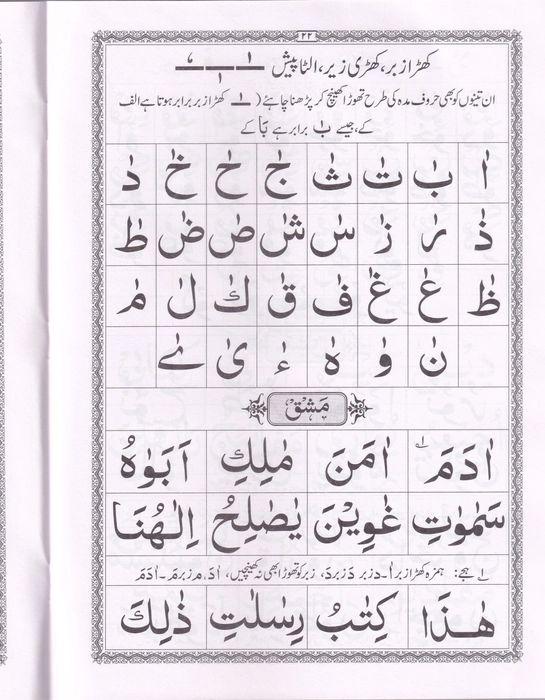 ۲۲
کھڑا زبر، کھڑی زیر، الٹا پیش ـٰ ـٖ ـٗ
ان تینوں کو بھی حروف مدہ کی طرح تھوڑا کھینچ کر پڑھنا چاہئے ( ـٰ کھڑا زبر برابر ہوتا ہے الف
کے، جیسے بٰ برابر ہے بَا کے
اٰ بٰ تٰ ثٰ جٰ حٰ خٰ دٰ
ذٰ رٰ زٰ سٰ شٰ صٰ ضٰ طٰ
ظٰ عٰ غٰ فٰ قٰ كٰ لٰ مٰ
نٰ وٰ هٰ ءٰ یٰ ےٰ
مَشق
اٰدَمَ ؎۱ اٰمَنَ مٰلِكِ اَبَوٰهُ
سَمٰوٰتِ غٰوِيْنَ يٰصٰلِحُ اِلٰهُنَا
؎۱ ہجے: ہمزہ کھڑا زبر اٰ۔ د زبر دَ زبر دَ، زبر کو تھوڑا بھی نہ کھینچیں، اٰدَ، م زبر مَ۔ اٰدَمَ
هٰذَا كِتٰبُ رِسٰلٰتِ ذٰلِكَ